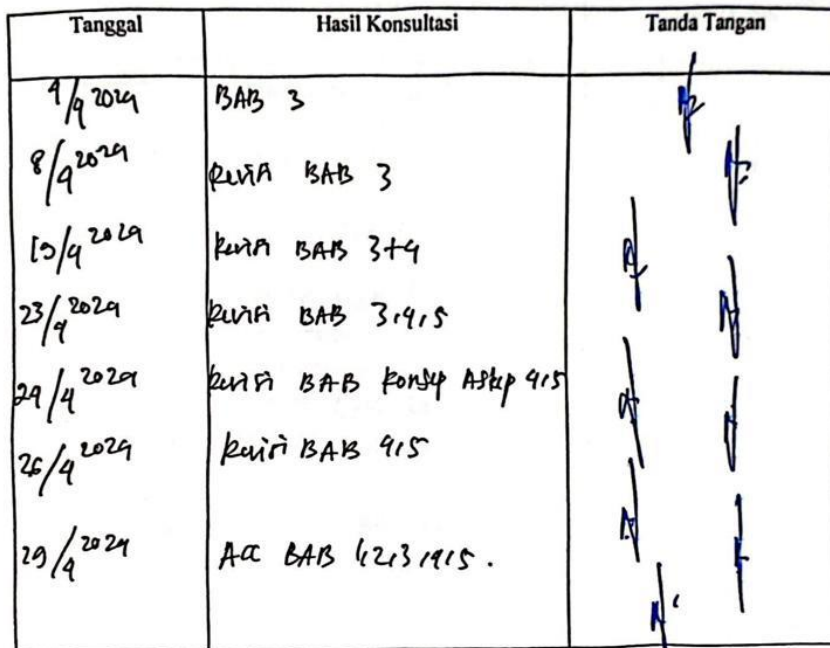 Tanggal Hasil Konsultasi Tanda Tangan
4/4 2024 BAB 3
8/4 2024 Revisi BAB 3
19/4 2024 Revisi BAB 3+4
23/4 2024 Revisi BAB 3,4,5
24/4 2024 Revisi BAB Konsep Askep 4,5
26/4 2024 Revisi BAB 4,5
29/4 2024 ACC BAB 1,2,3,4,5.